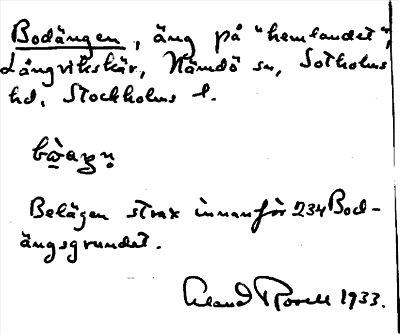 Bodängen, äng på "hemlandet",
Långvikskär, Nämdö sn, Sotholms
hd, Stockholms l.
Belägen strax innanför 234 Bod-
ängsgrundet.
Rosell 1933.